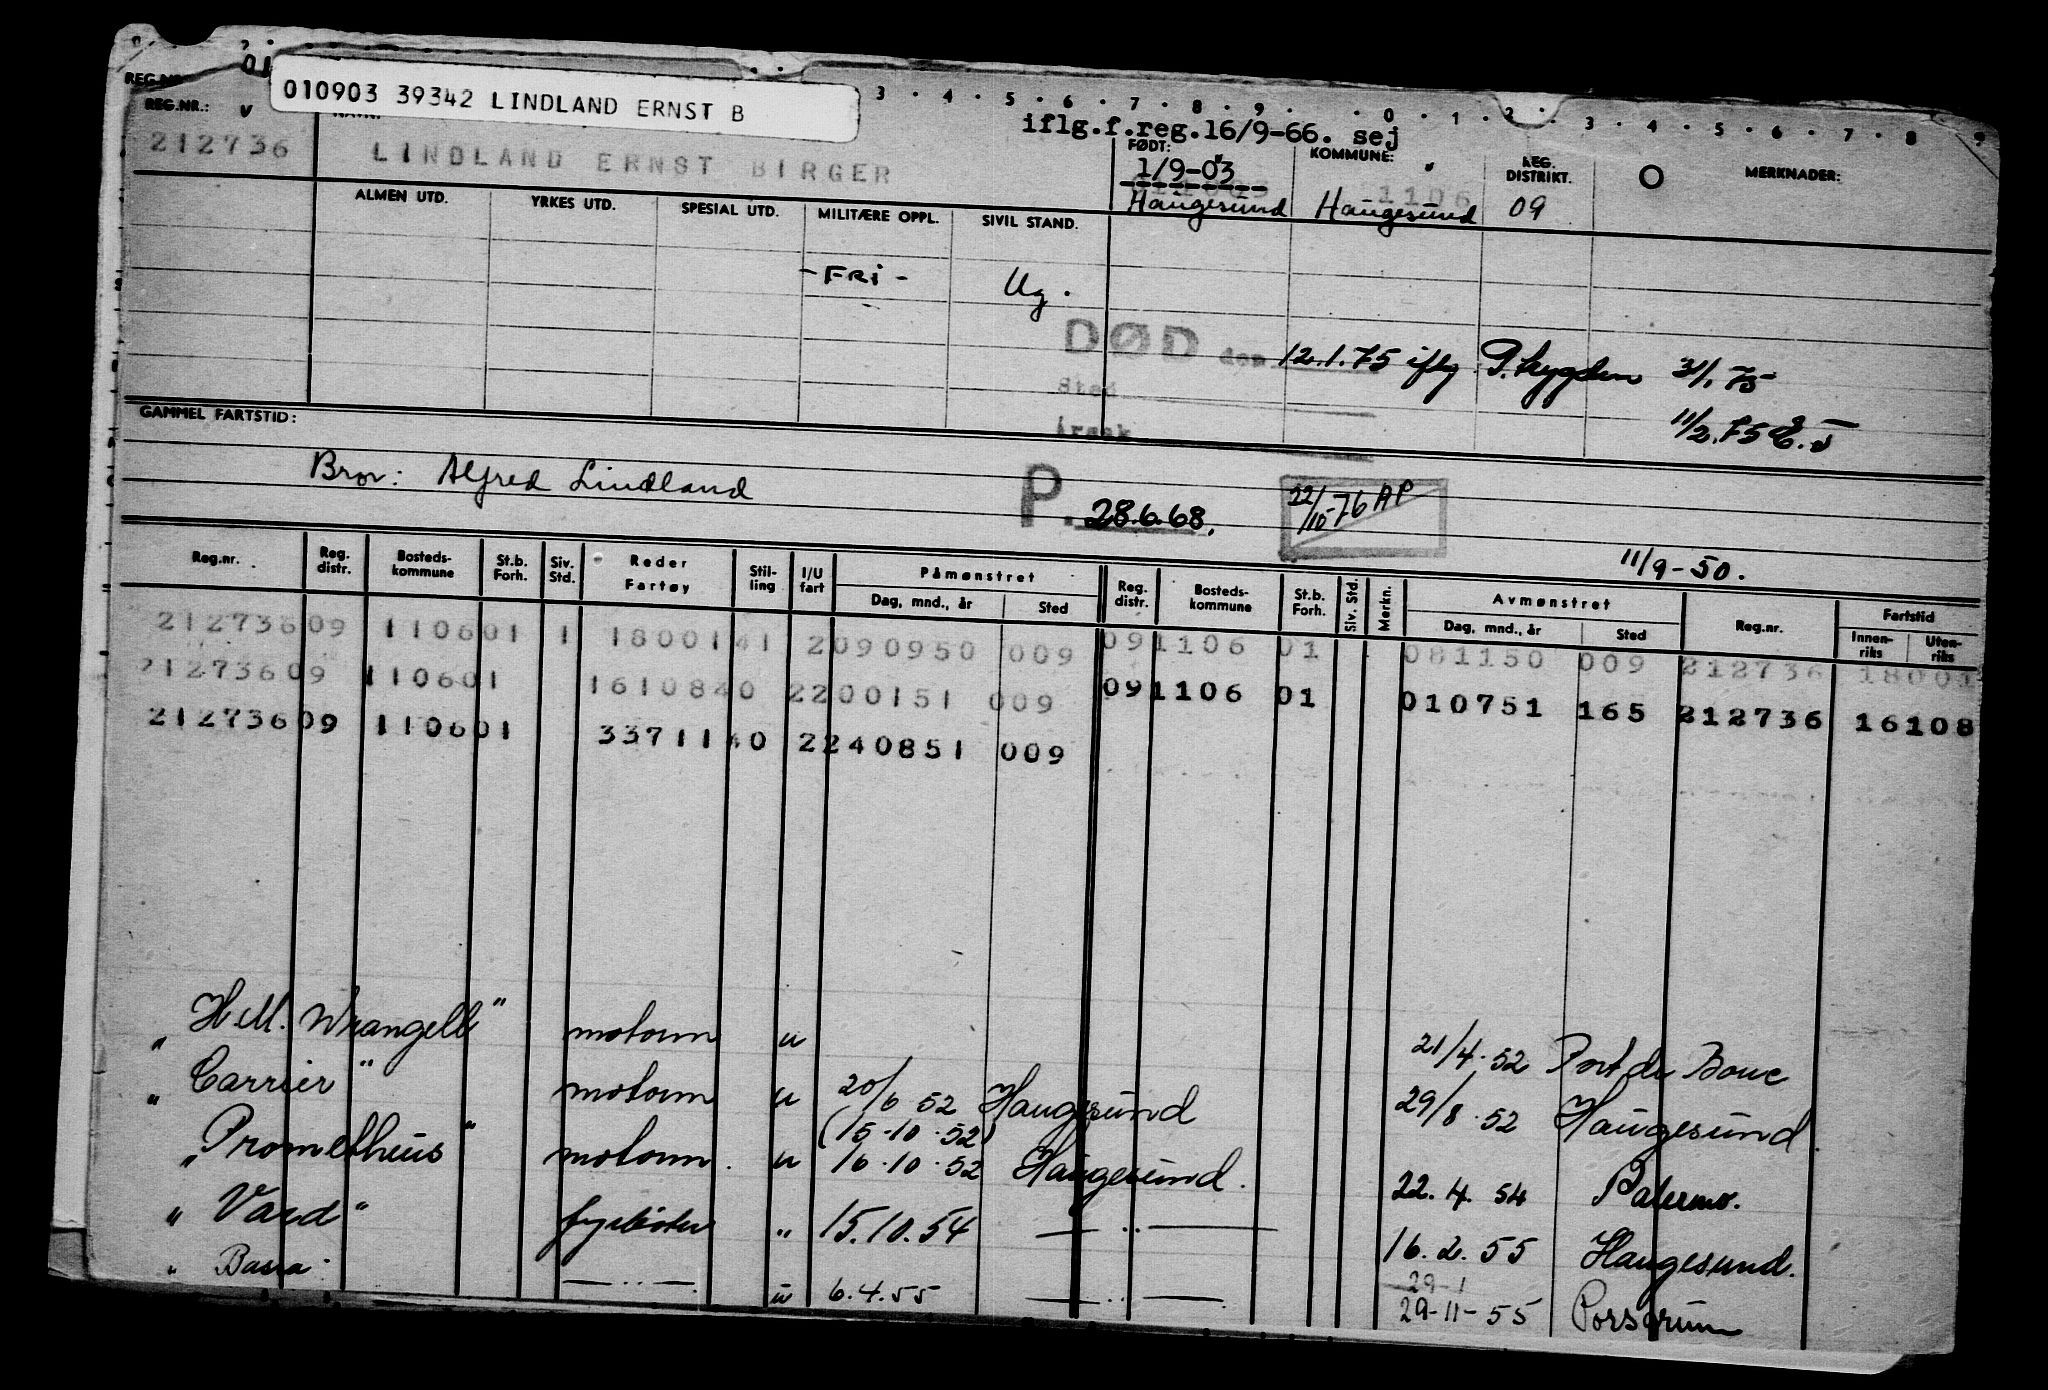 010903 39342 LINDLAND ERNST B
REG.NR.:
iflg.f.reg.16/9-66. sej
212736 LINDLAND ERNST BIRGER
FØDT: 1/9-03 Haugesund
KOMMUNE: 1106 Haugesund
REG. DISTRIKT. 09
O
MERKNADER:
ALMEN UTD. YRKES UTD. SPESIAL UTD. MILITÆRE OPPL. SIVIL STAND.
-FRI- Ug.
DØD den 12.1.75 iflg 31/1.75
Sted
11/2.75
Årsak
GAMMEL FARTSTID:
Bror: Alfred Lindland
P. 28.6.68. 22/10-76 AP
11/9-50.
Reg.nr. Reg. distr. Bosteds-kommune St.b. Forh. Siv. Std. Reder Fartøy Stil-ling I/U fart Påmønstret Dag, mnd., år Sted Reg. distr. Bosteds-kommune St.b. Forh. Siv. Std. Merkn. Avmønstret Dag, mnd., år Sted Reg.nr. Fartstid Innen-riks Uten-riks
212736 09 1106 01 1 1800141 2090950 009 09 1106 01 081150 009 212736 18001
212736 09 1106 01 1610840 2200151 009 09 1106 01 010751 165 212736 16108
212736 09 1106 01 3371140 2240851 009
"H.M. Wrangell" motorm u 21/4.52 Port de Bouc
"Carrier" motorm u 20/6 52 Haugesund 29/8.52 Haugesund.
(15.10.52)
"Prometheus" motorm. u 16.10.52 Haugesund. 22.4.54 Palermo.
"Vard" fyrbøter " 15.10.54 — " — 16.2.55 Haugesund.
29-1
" Basra — " — u 6.4.55 — " — 29-11-55 Porsgrunn